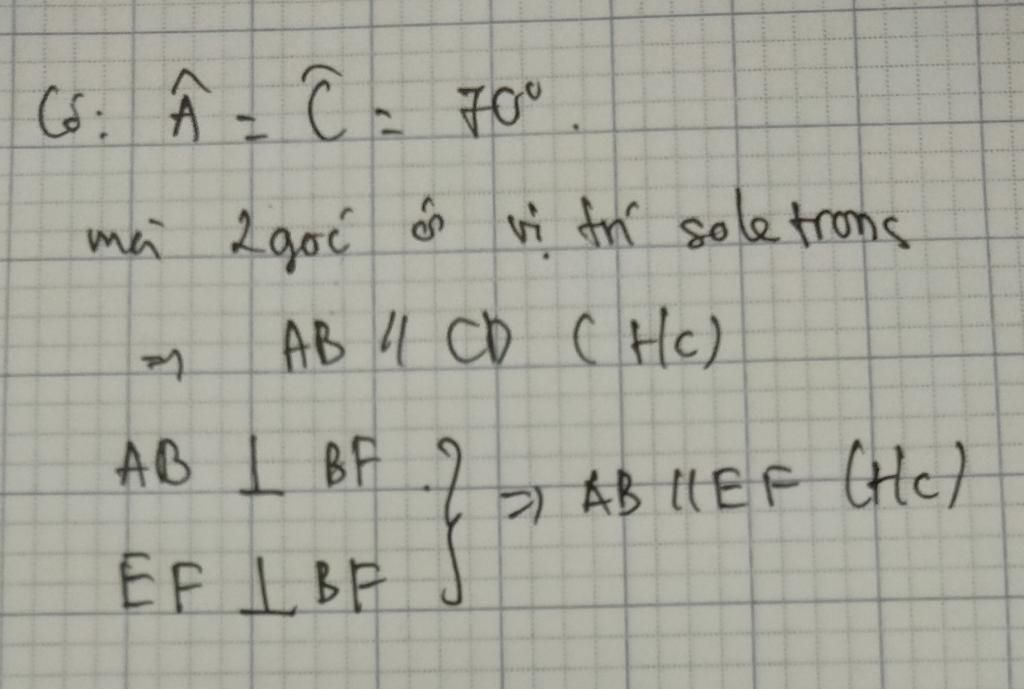 Có: Â = Ĉ = 70°.
mà 2 góc ở vị trí so le trong
=> AB // CD (t/c)
AB ⊥ BF } => AB // EF (t/c)
EF ⊥ BF